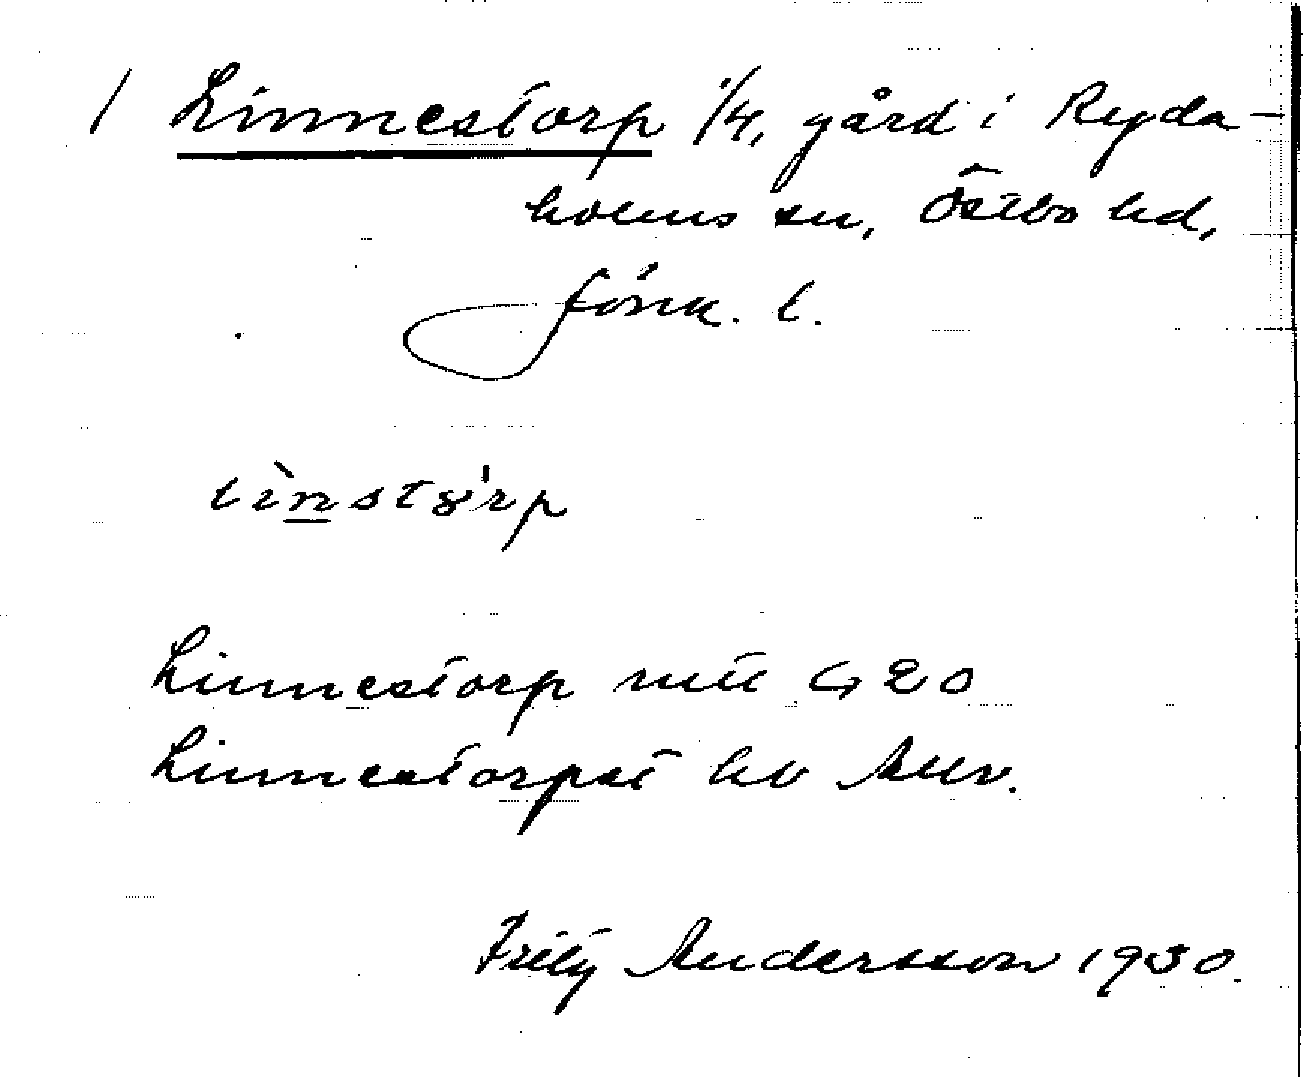 / Linnestorp 1/4, gård i Ryda-
holms sn, Östbo hd,
Jönk. l.
Linnestorp mtl G 20
Linnestorpet hv Allm.
Fritz Andersson 1930.